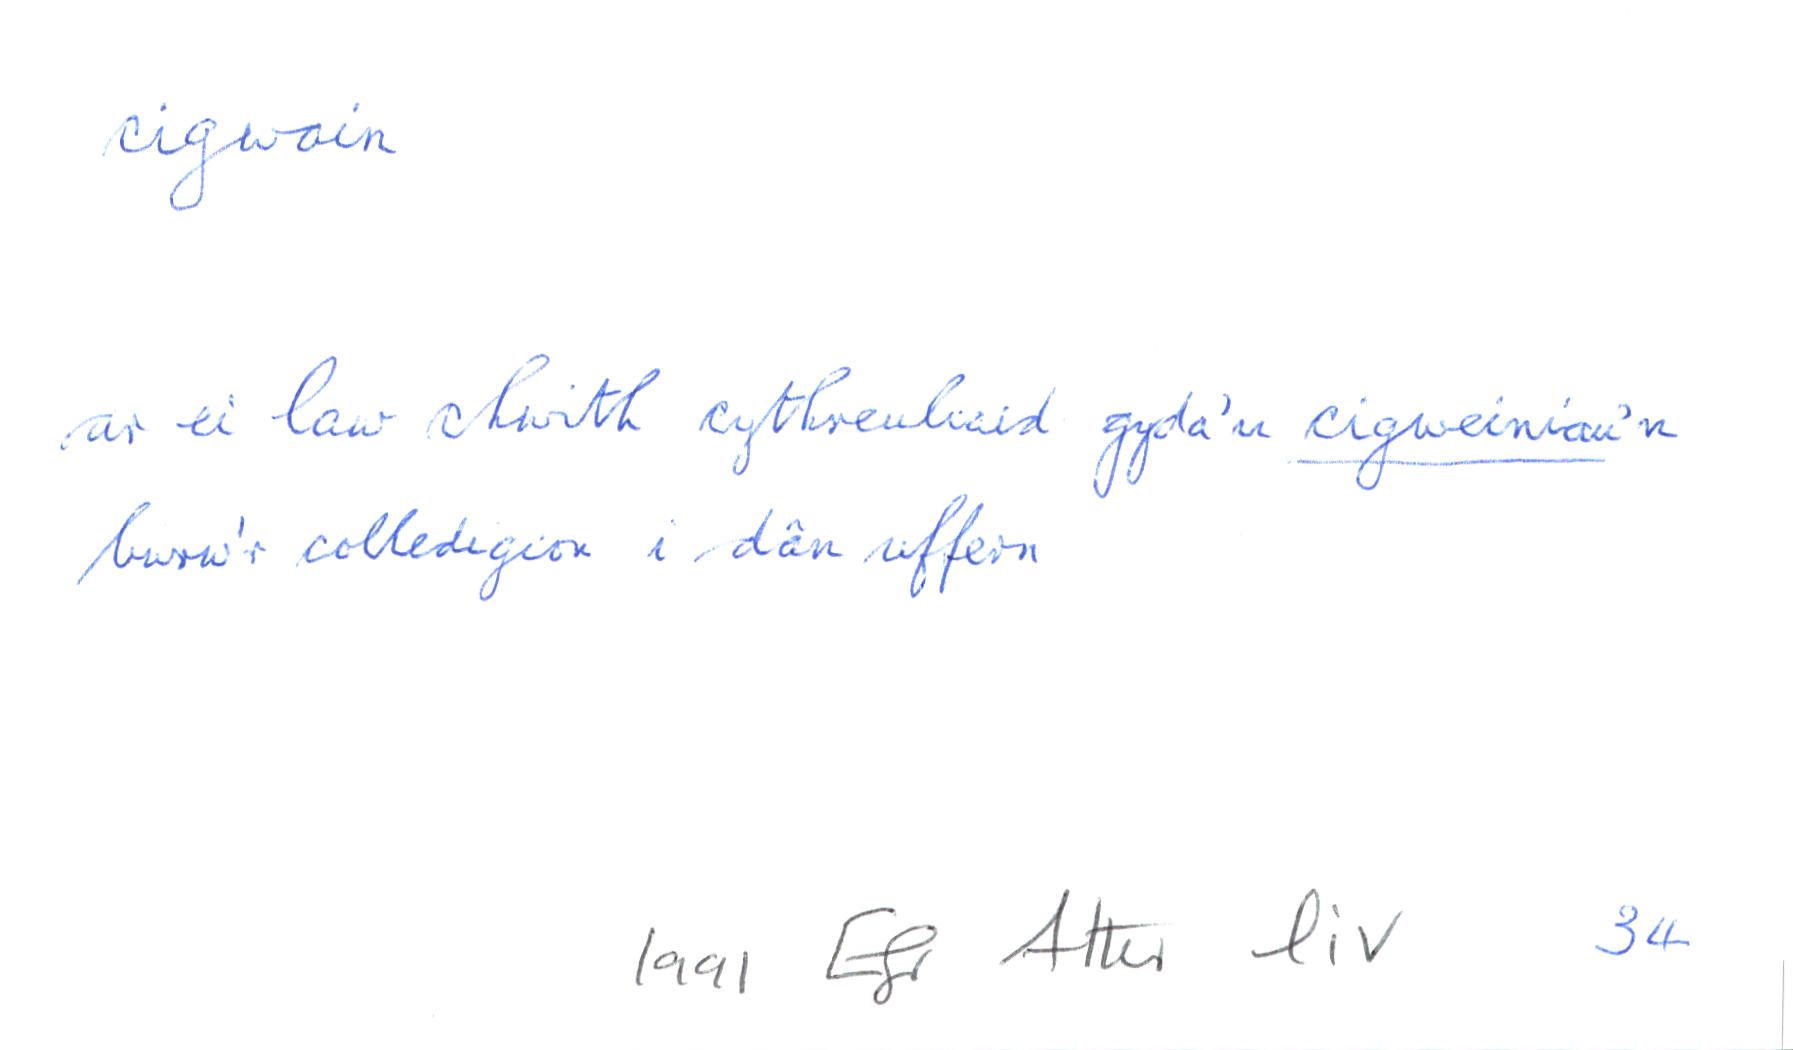 cigwain
ar ei law chwith cythreuliaid gyda'u cigweiniau'n
bwrw'r colledigion i dân uffern
1991 Efr Athr liv 34